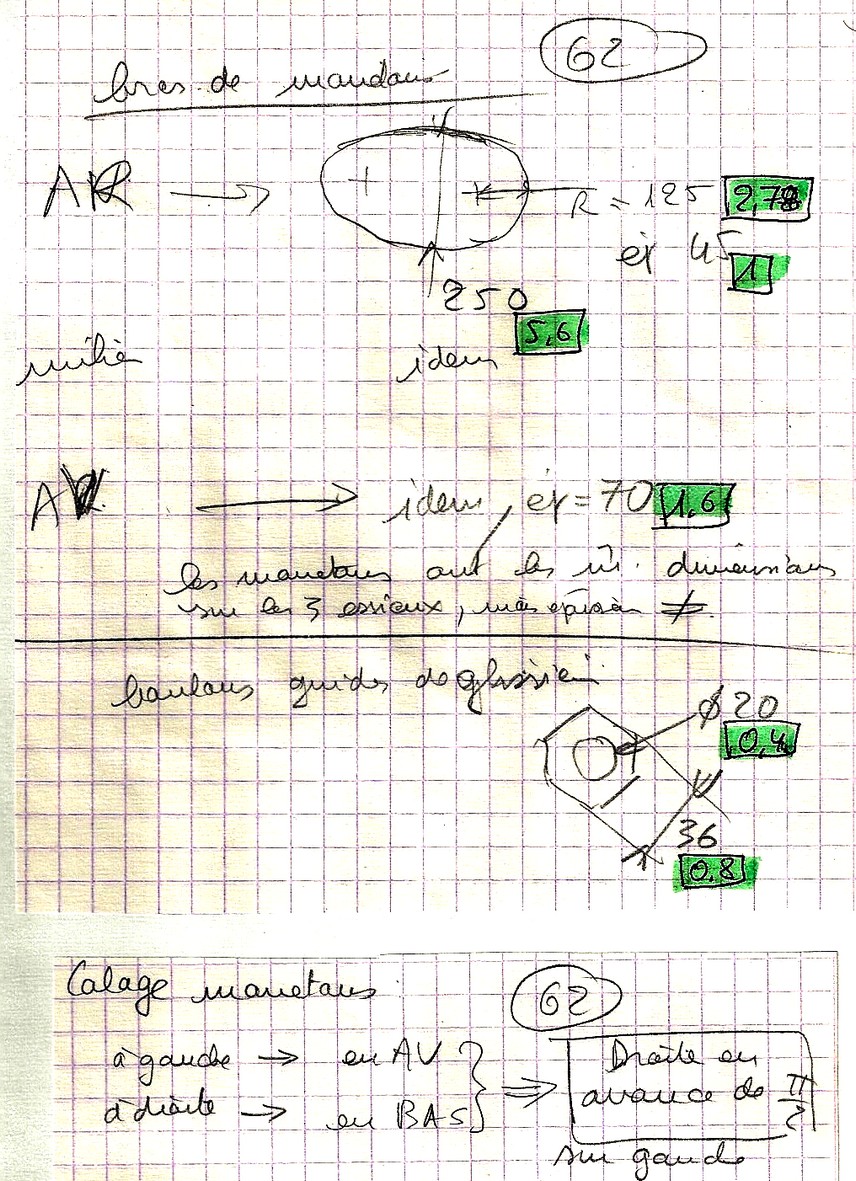 62
bras de manetons
AR → R = 125 2,78
ép 45 1
250
5,6
milieu idem
AV → idem, ép = 70 1,6
les manetons ont les m. dimensions
sur les 3 essieux, mais épaisseur ≠.
boulons guides de glissière
Ø 20
0,4
36
0,8
Calage manetons
62
à gauche → en AV
à droite → en BAS
⇒ Droite en
avance de π/2
sur gauche